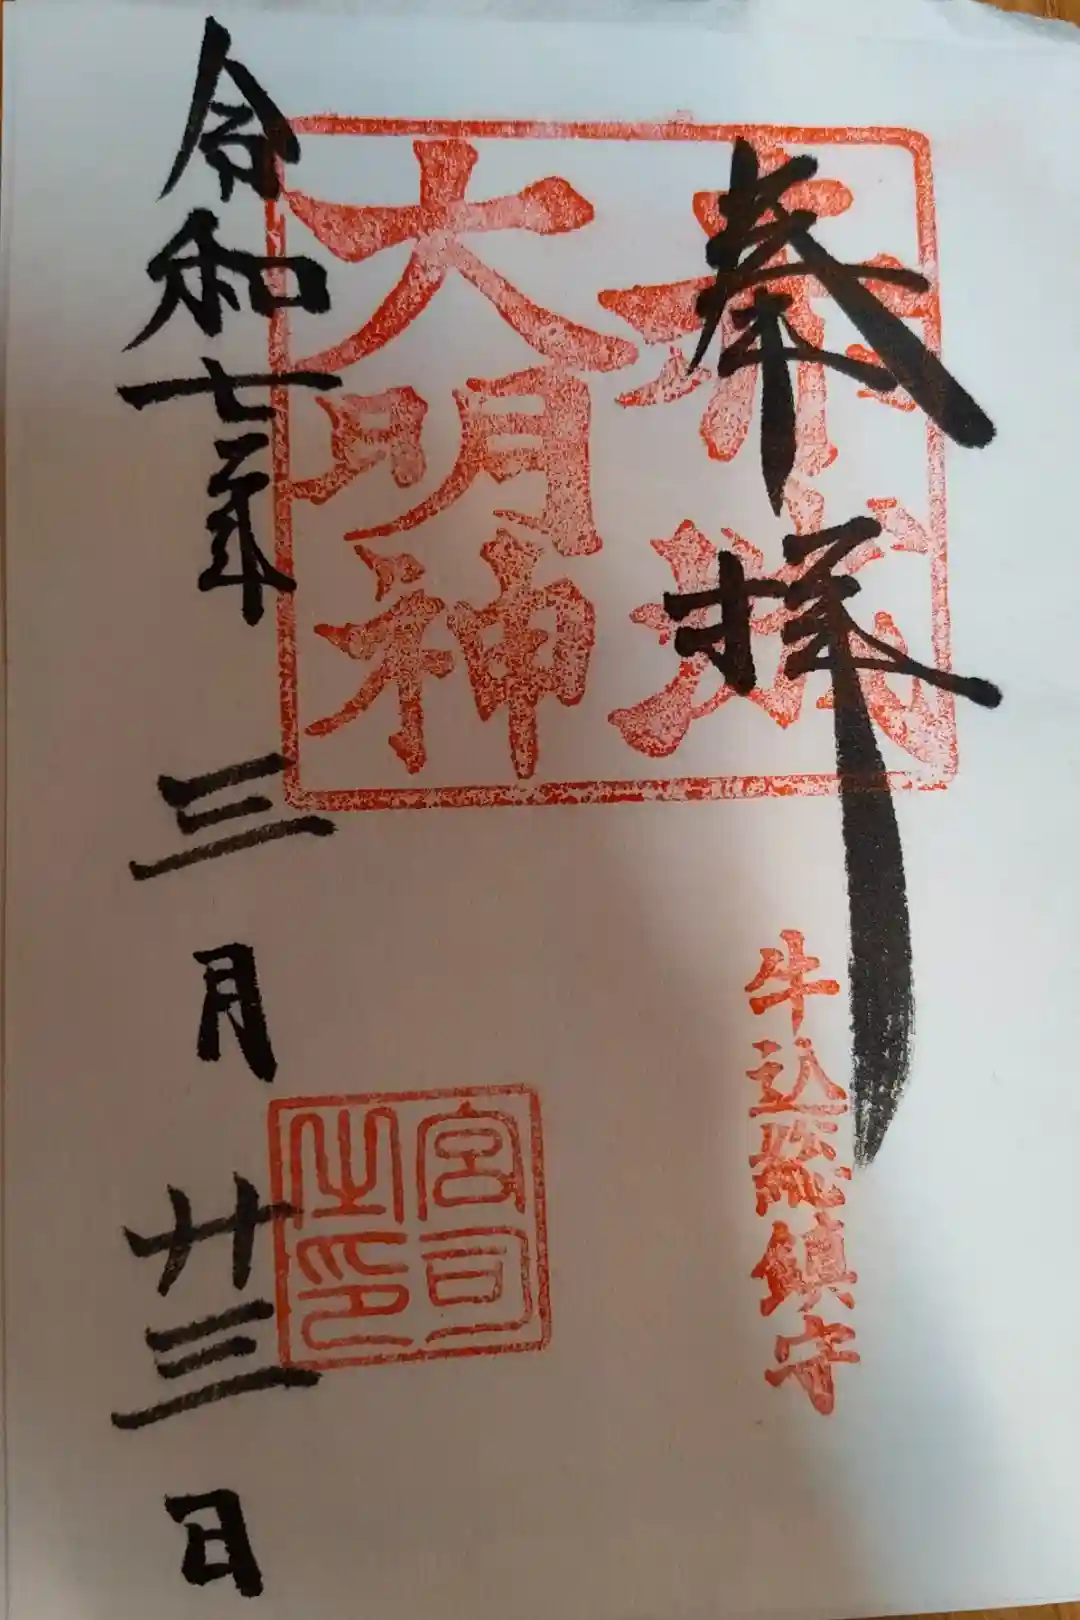 奉拝
赤城
大明神
牛込総鎮守
宮司
之印
令和七年 三月 廿三日